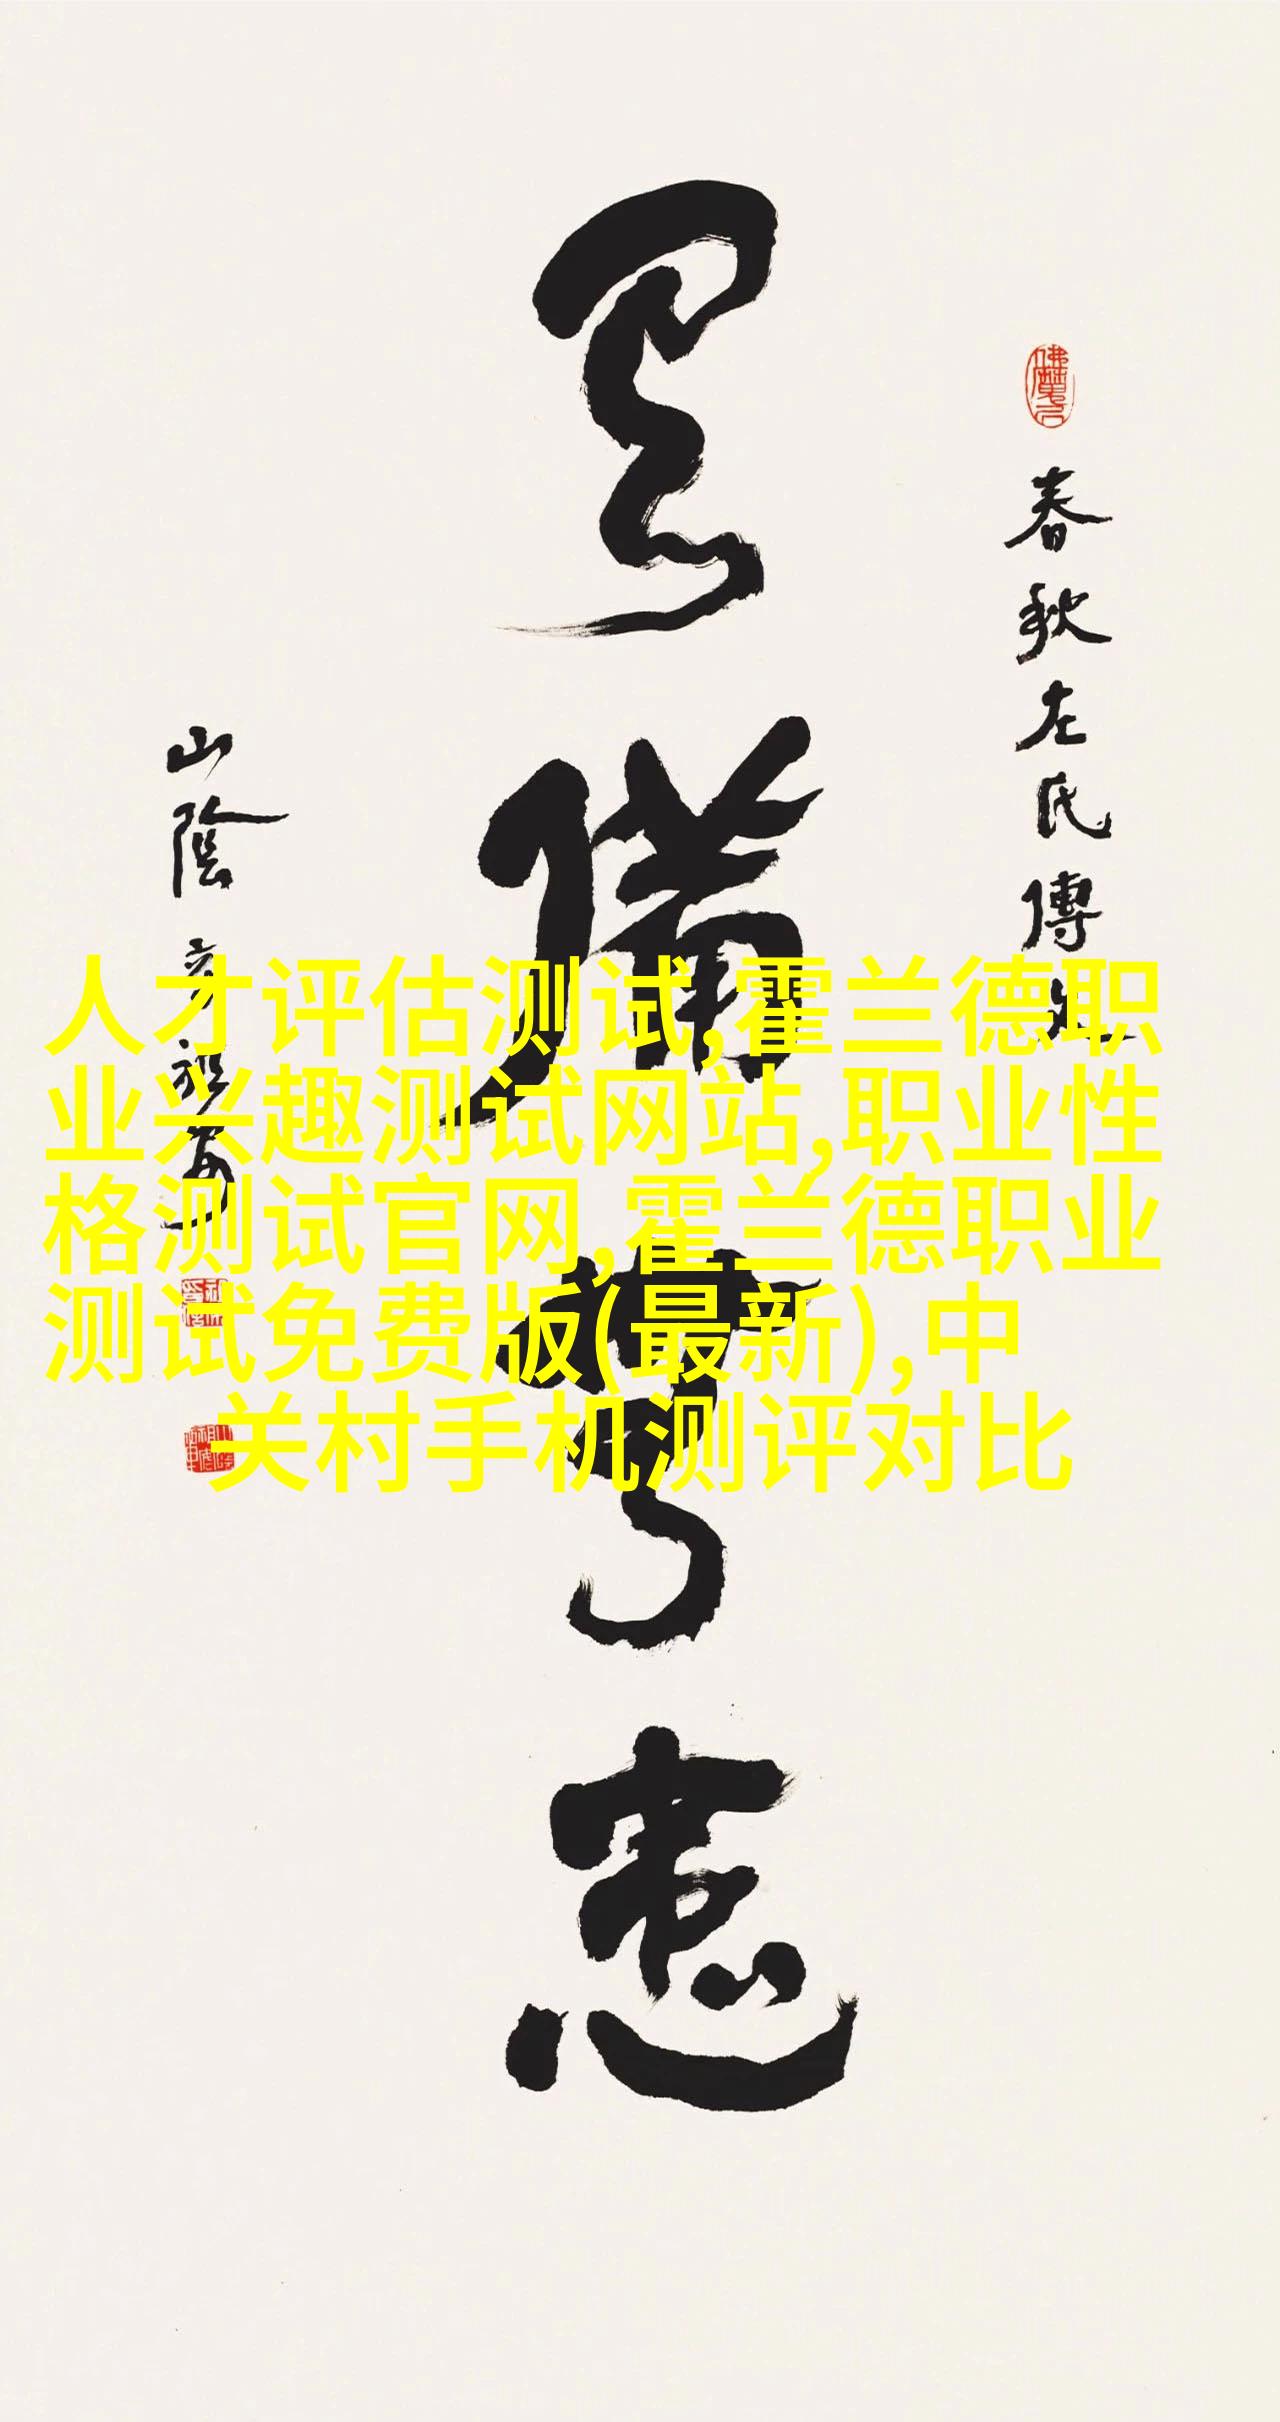 春秋左氏傳
備
患
山陰
人才评估测试,霍兰德职
业兴趣测试网站,职业性
格测试官网,霍兰德职业
测试免费版(最新),中
关村手机测评对比